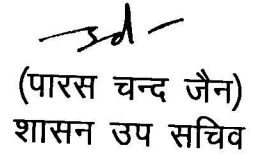 sd-
(पारस चन्द जैन)
शासन उप सचिव